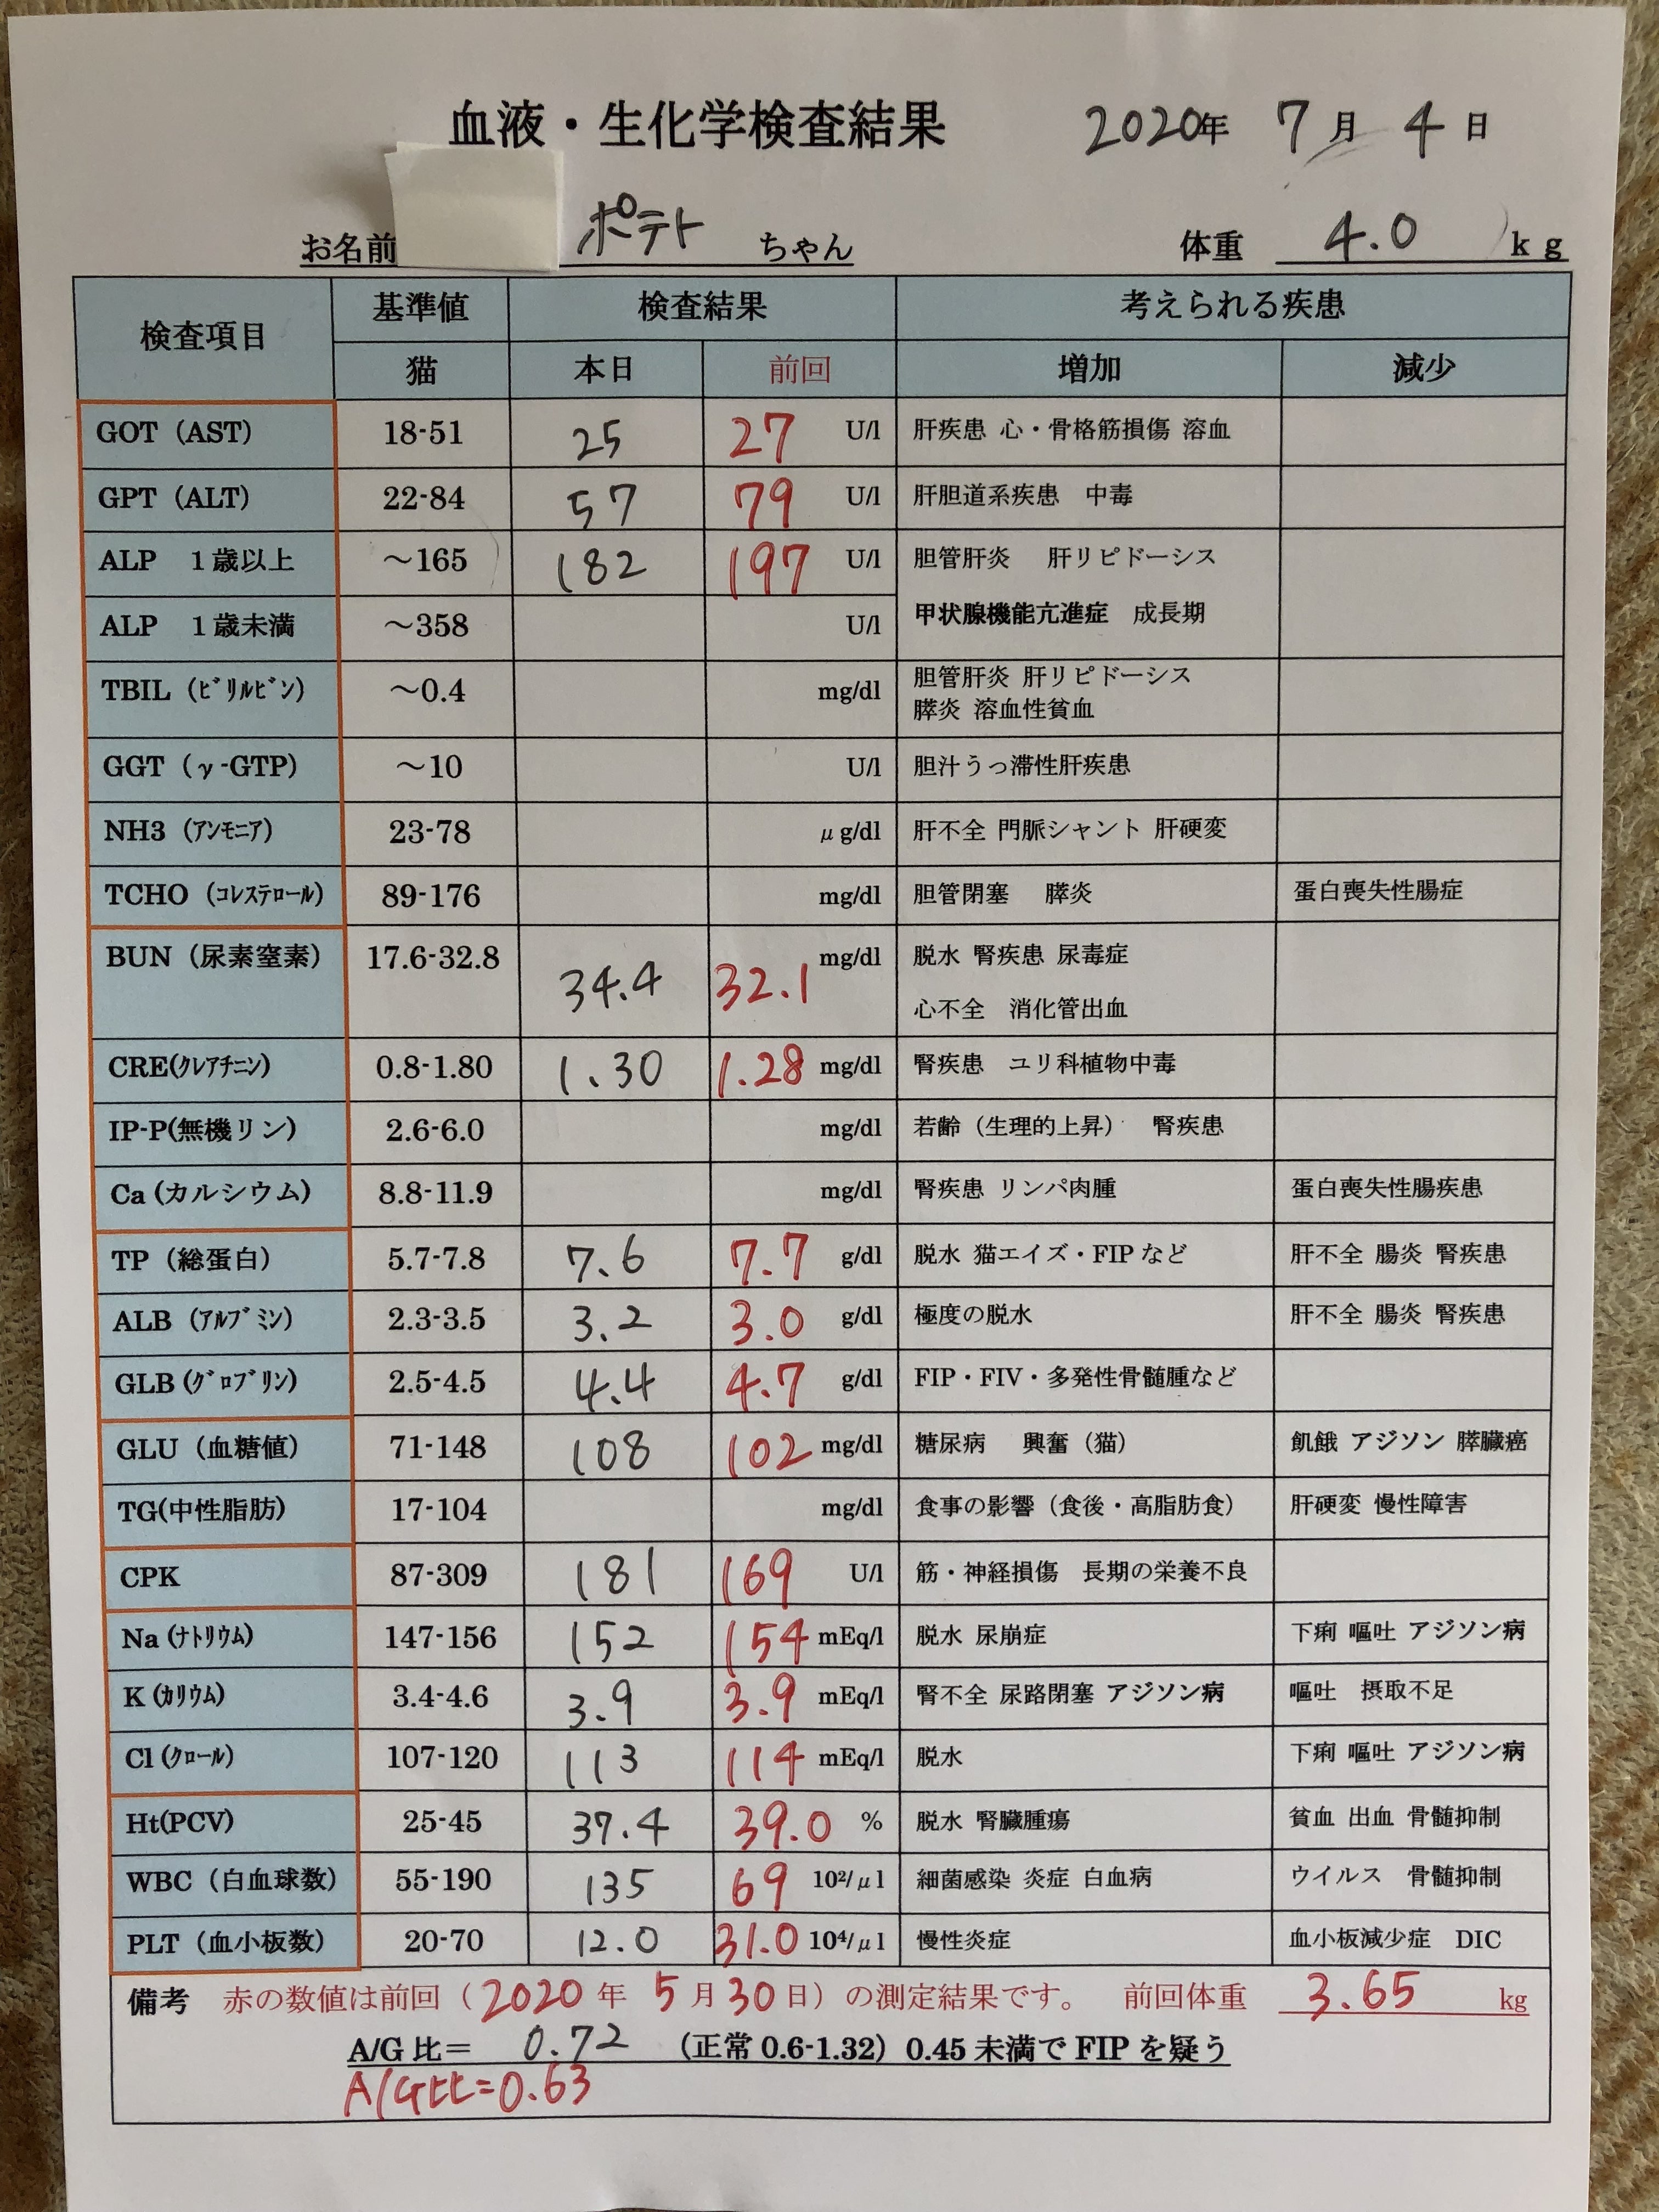 血液・生化学検査結果 2020年 7月 4日
お名前 ポテト ちゃん 体重 4.0 kg
検査項目 基準値 検査結果 考えられる疾患
猫 本日 前回 増加 減少
GOT (AST) 18-51 25 27 U/l 肝疾患 心・骨格筋損傷 溶血
GPT (ALT) 22-84 57 79 U/l 肝胆道系疾患 中毒
ALP 1歳以上 ～165 182 197 U/l 胆管肝炎 肝リピドーシス
ALP 1歳未満 ～358 U/l 甲状腺機能亢進症 成長期
TBIL (ﾋﾞﾘﾙﾋﾞﾝ) ～0.4 mg/dl 胆管肝炎 肝リピドーシス
膵炎 溶血性貧血
GGT (γ-GTP) ～10 U/l 胆汁うっ滞性肝疾患
NH3 (ｱﾝﾓﾆｱ) 23-78 μg/dl 肝不全 門脈シャント 肝硬変
TCHO (ｺﾚｽﾃﾛｰﾙ) 89-176 mg/dl 胆管閉塞 膵炎 蛋白喪失性腸症
BUN (尿素窒素) 17.6-32.8 34.4 32.1 mg/dl 脱水 腎疾患 尿毒症
心不全 消化管出血
CRE(ｸﾚｱﾁﾆﾝ) 0.8-1.80 1.30 1.28 mg/dl 腎疾患 ユリ科植物中毒
IP-P(無機リン) 2.6-6.0 mg/dl 若齢（生理的上昇） 腎疾患
Ca (カルシウム) 8.8-11.9 mg/dl 腎疾患 リンパ肉腫 蛋白喪失性腸疾患
TP (総蛋白) 5.7-7.8 7.6 7.7 g/dl 脱水 猫エイズ・FIP など 肝不全 腸炎 腎疾患
ALB (ｱﾙﾌﾞﾐﾝ) 2.3-3.5 3.2 3.0 g/dl 極度の脱水 肝不全 腸炎 腎疾患
GLB (ｸﾞﾛﾌﾞﾘﾝ) 2.5-4.5 4.4 4.7 g/dl FIP・FIV・多発性骨髄腫など
GLU (血糖値) 71-148 108 102 mg/dl 糖尿病 興奮（猫） 飢餓 アジソン 膵臓癌
TG(中性脂肪) 17-104 mg/dl 食事の影響（食後・高脂肪食） 肝硬変 慢性障害
CPK 87-309 181 169 U/l 筋・神経損傷 長期の栄養不良
Na (ﾅﾄﾘｳﾑ) 147-156 152 154 mEq/l 脱水 尿崩症 下痢 嘔吐 アジソン病
K (ｶﾘｳﾑ) 3.4-4.6 3.9 3.9 mEq/l 腎不全 尿路閉塞 アジソン病 嘔吐 摂取不足
Cl (ｸﾛｰﾙ) 107-120 113 114 mEq/l 脱水 下痢 嘔吐 アジソン病
Ht(PCV) 25-45 37.4 39.0 % 脱水 腎臓腫瘍 貧血 出血 骨髄抑制
WBC (白血球数) 55-190 135 69 10²/μl 細菌感染 炎症 白血病 ウイルス 骨髄抑制
PLT (血小板数) 20-70 12.0 31.0 10⁴/μl 慢性炎症 血小板減少症 DIC
備考 赤の数値は前回（2020年 5月30日）の測定結果です。 前回体重 3.65 kg
A/G 比＝ 0.72 (正常 0.6-1.32) 0.45 未満で FIP を疑う
A/G比=0.63